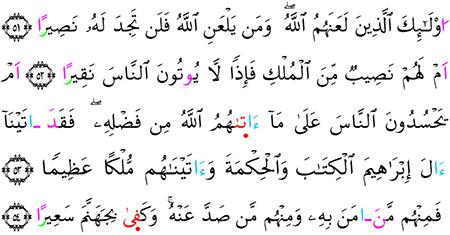 اُوْلَٰٓئِكَ ٱلَّذِينَ لَعَنَهُمُ ٱللَّهُۖ وَمَن يَلْعَنِ ٱللَّهُ فَلَن تَجِدَ لَهُۥ نَصِيرًا ٥١
اَمْ لَهُمْ نَصِيبٌ مِّنَ ٱلْمُلْكِ فَإِذًا لَّا يُوتُونَ ٱلنَّاسَ نَقِيرًا ٥٢ اَمْ
يَحْسُدُونَ ٱلنَّاسَ عَلَىٰ مَآ ءَاتَىٰهُمُ ٱللَّهُ مِن فَضْلِهِۦۖ فَقَدَ ـاتَيْنَآ
ءَالَ إِبْرَٰهِيمَ ٱلْكِتَٰبَ وَٱلْحِكْمَةَ وَءَاتَيْنَٰهُم مُّلْكًا عَظِيمًا ٥٣
فَمِنْهُم مَّنَ ـامَنَ بِهِۦ وَمِنْهُم مَّن صَدَّ عَنْهُۖ وَكَفَىٰ بِجَهَنَّمَ سَعِيرًا ٥٤